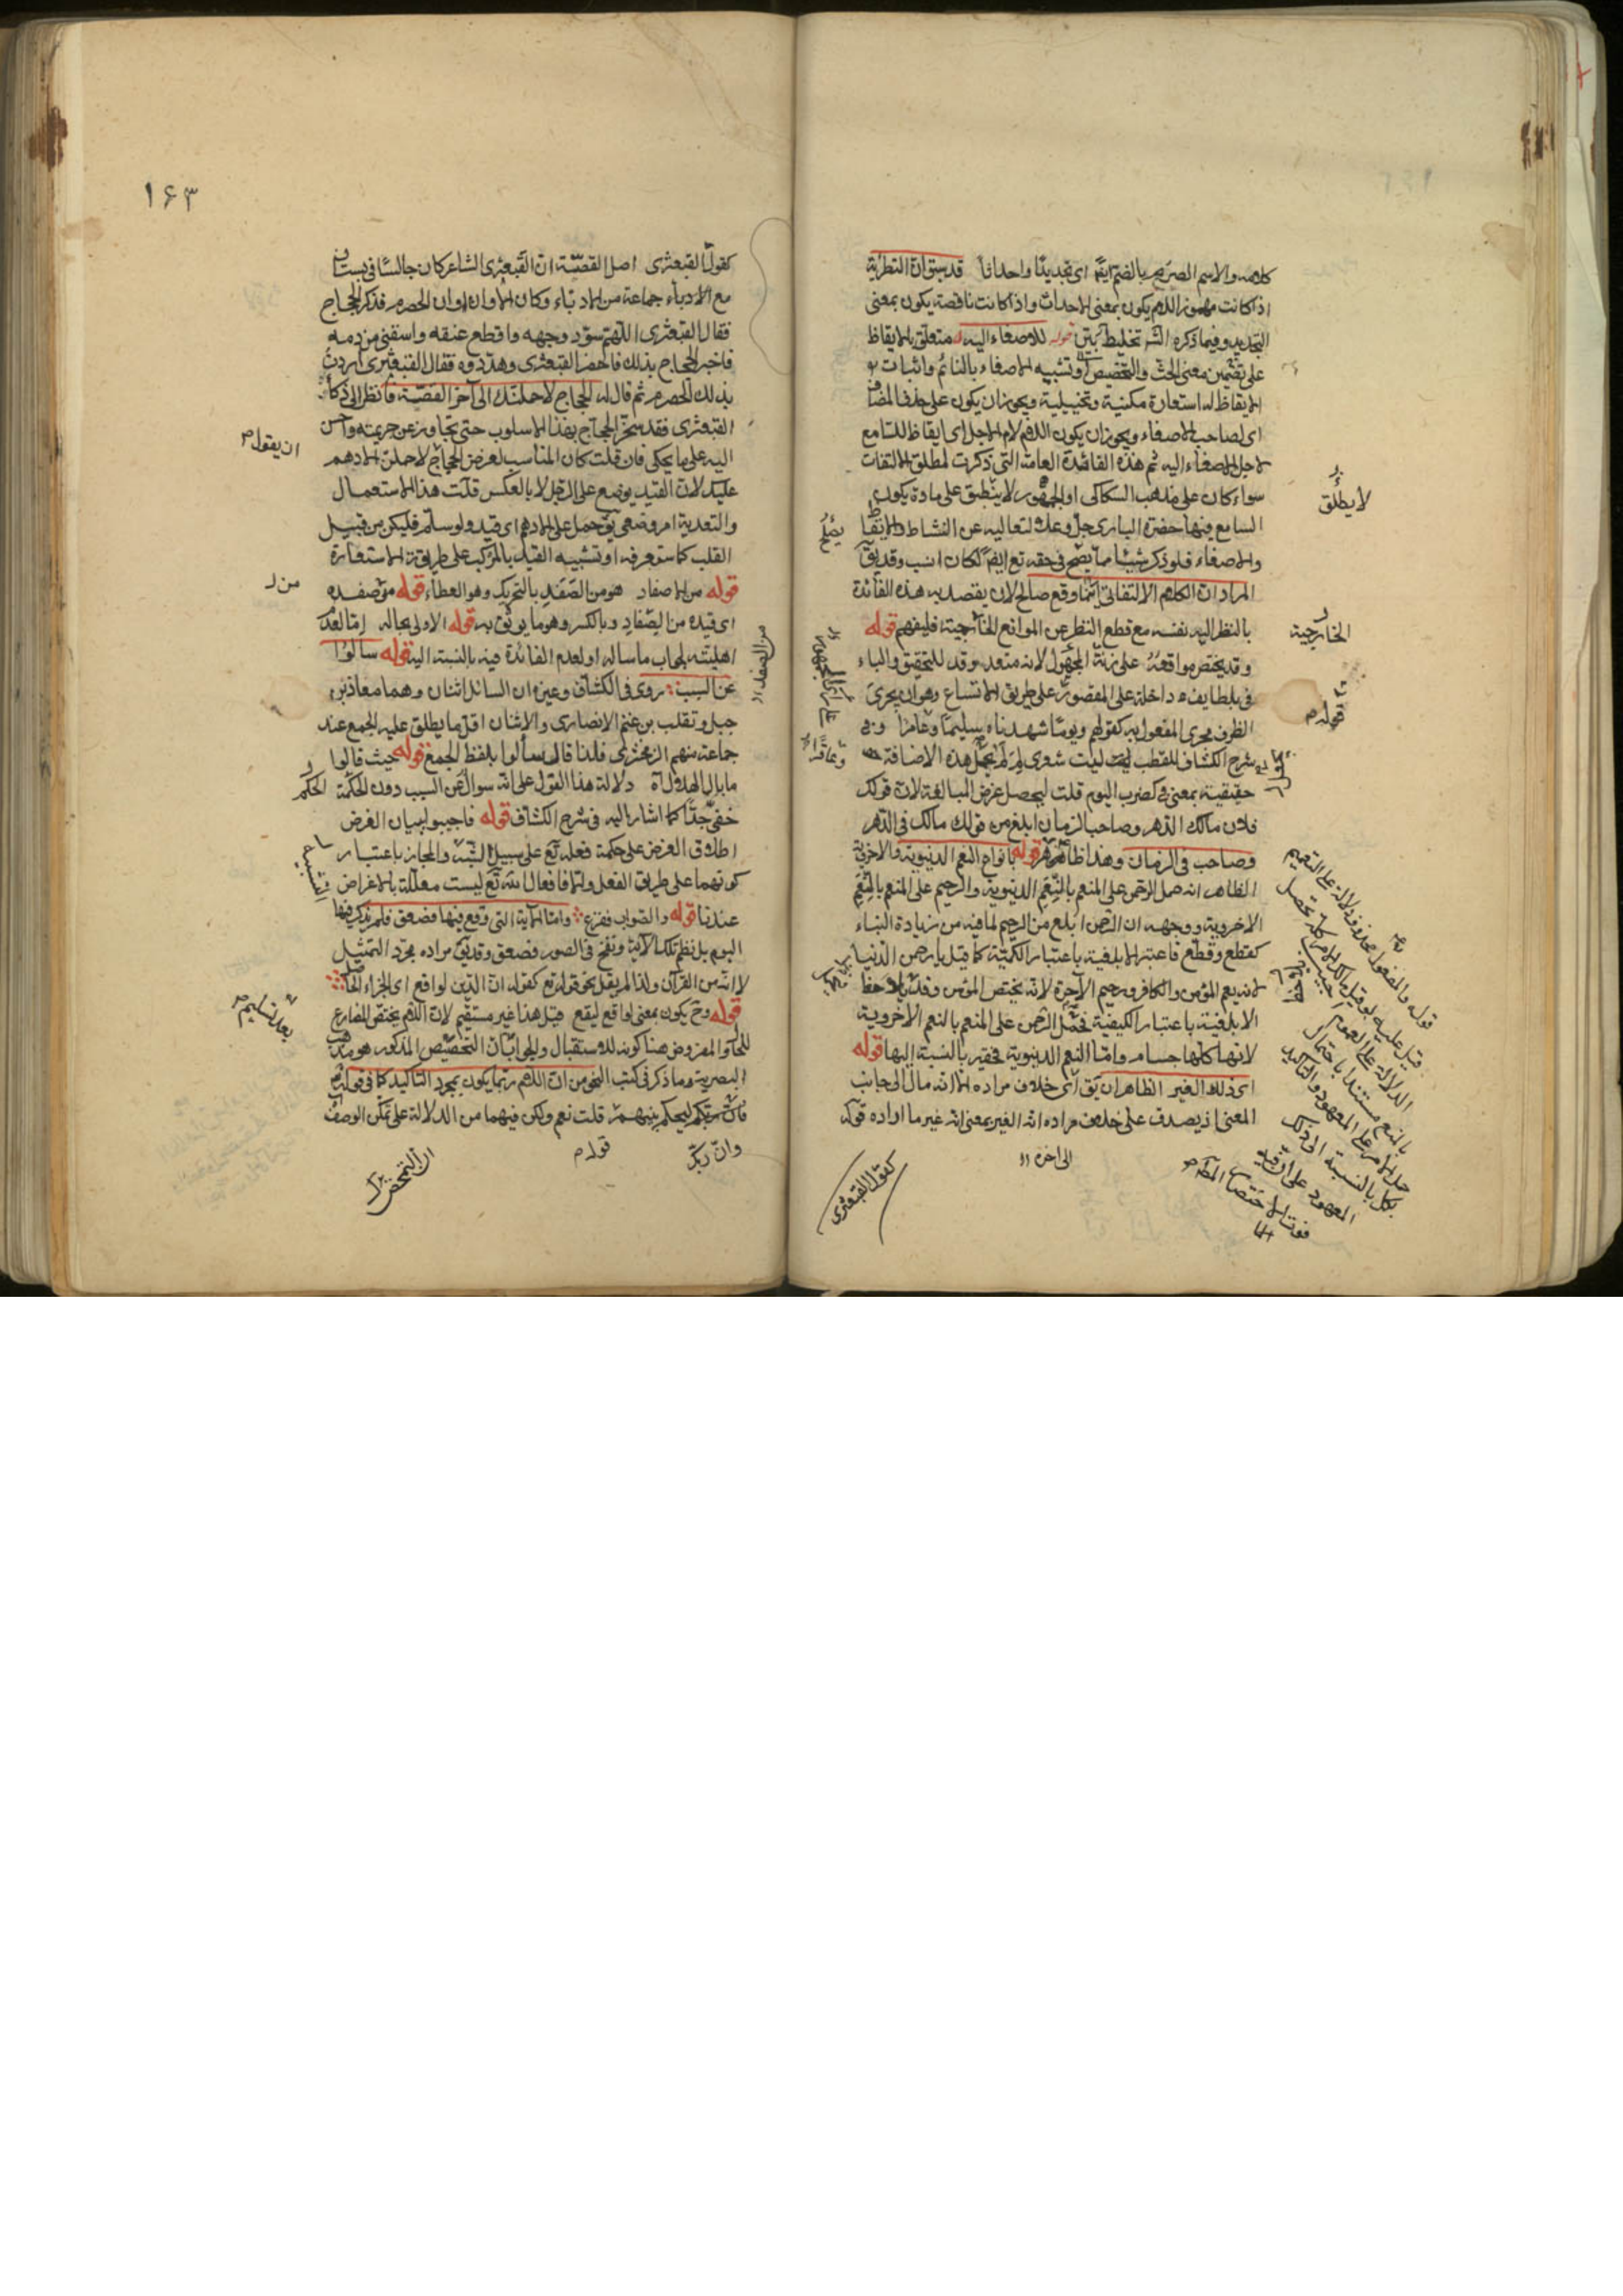 كلامه والاسم الصريح بالضم ايضا اى تجديدا واحداثا قد سبق ان التطرية
اذا كانت مهموز اللام يكون بمعنى الاحداث واذا كانت ناقصة يكون بمعنى
التجديد وفيما ذكره الش تخليط بين قوله للاصغاء اليه متعلق بالايقاظ
على تضمين معنى الحث والتخصيص وتشبيه الاصغاء بالنائم واثبات
الايقاظ له استعارة مكنية وتخييلية ويجوز ان يكون على حذف المضاف
اى لصاحب الاصغاء ويجوز ان يكون اللام لام الاجل اى ايقاظ للسامع
لاجل الاصغاء اليه ثم هذه الفائدة العامة التى ذكرت لمطلق الالتفات
سواء كان على مذهب السكاكى او الجمهور لا ينطبق على مادة يكون
السامع فيها حضرة البارى جل وعلا لتعاليه عن النشاط والايقاظ
والاصغاء فلو ذكر شيئا مما يصح فى حقه تع ايضا لكان انسب وقد يق
المراد ان الكلام الالتفاتى انما وقع صالحا لان يقصد به هذه الفائدة
بالنظر اليه نفسه مع قطع النظر عن الموانع الخارجية فليفهم قوله
وقد يختص مواقعه على زنة المجهول لانه متعد وقد للتحقيق والباء
فى بلطايف داخلة على المقصور على طريق الاتساع وهو ان يجرى
الظرف مجرى المفعول به كقولهم ويوما شهدناه سليما وعامرا وفى
شرح الكشاف للقطب ليت شعرى لم لم يجعل هذه الاضافة
حقيقية بمعنى فى كضرب اليوم قلت ليحصل غرض المبالغة لان قولك
فلان مالك الدهر وصاحب الزمان ابلغ من قولك مالك فى الدهر
وصاحب فى الزمان وهذا ظاهر قوله بانواع النعم الدنيوية والاخروية
الظاهر انه حمل الرحمن على المنعم بالنعم الدنيوية والرحيم على المنعم بالنعم
الاخروية ووجهه ان الرحمن ابلغ من الرحيم لما فيه من زيادة البناء
كقطع وقطع فاعتبر الابلغية باعتبار الكمية كما قيل يا رحمن الدنيا
لانه يعم المؤمن والكافر ورحيم الآخرة لانه يختص المؤمن وقد يلاحظ
الابلغية باعتبار الكيفية فحمل الرحمن على المنعم بالنعم الاخروية
لانها كلها جسام واما النعم الدنيوية فحقير بالنسبة اليها قوله
اى ذلك الغير الظاهر ان يق اى خلاف مراده الا انه مال الى جانب
المعنى اذ يصدق على خلاف مراده انه الغير بمعنى انه غير ما اراده قوله
الى اخره
كقول القبعثرى
لا يطلق
يصح
الخارجية
قوله
١٦٣
كقول القبعثرى اصل القصة ان القبعثرى الشاعر كان جالسا فى بستان
مع الادباء جماعة من الادباء وكان الاوان اوان الحصرم فذكر الحجاج
فقال القبعثرى اللهم سود وجهه واقطع عنقه واسقنى من دمه
فاخبر الحجاج بذلك فاحضر القبعثرى وهدده فقال القبعثرى اردت
بذلك الحصرم ثم قال له الحجاج لاحملنك الى آخر القصة فانظر الى ذكاء
القبعثرى فقد سخر الحجاج بهذا الاسلوب حتى تجاوز عن جريمته واحسن
اليه على ما يحكى فان قلت كان المناسب لغرض الحجاج لاحملن الادهم
عليك لان القيد يوضع على الرجل لا بالعكس قلت هذا الاستعمال
والتعدية امر وضعى يق حمل على الادهم اى قيد ولو سلم فليكن من قبيل
القلب كما ستعرفه او تشبيه القيد بالمركب على طريقة الاستعارة
قوله من الاصفاد هو من الصفد بالتحريك وهو العطاء قوله من صفده
اى قيده من الصفاد وبالكسر وهو ما يوثق به قوله الاولى بحاله اما لعدم
اهليته لجواب ما سأله او لعدم الفائدة فيه بالنسبة اليه قوله سألوا
عن السبب روى فى الكشاف وغيره ان السائل اثنان وهما معاذ بن
جبل وثعلب بن غنم الانصارى والاثنان اقل ما يطلق عليه الجمع عند
جماعة منهم الزمخشرى فلذا قال سألوا بلفظ الجمع قوله حيث قالوا
ما بال الهلال اه دلالة هذا القول على انه سوال عن السبب دون الحكمة
خفى جدا كما اشار اليه فى شرح الكشاف قوله فاجيبوا ببيان الغرض
اطلاق الغرض على حكمة فعله تع على سبيل التشبيه والمجاز باعتبار
كونهما على طريق الفعل والا فافعال الله تع ليست معللة بالاغراض
عندنا قوله والصواب ففزع واما الاية التى وقع فيها فصعق فلم يذكر فيها
اليوم بل نظم تلك الاية ونفخ فى الصور فصعق وقد يق مراده مجرد التمثيل
لا انه من القرآن ولذا لم يقل نحو قوله تع كقوله ان الدين لواقع اى الجزاء الحاصل
قوله وح يكون بمعنى لواقع ليقع قيل هذا غير مستقيم لان اللام يختص المضارع
للحال والمفروض هنا كونه للاستقبال والجواب ان التخصيص المذكور هو مذهب
البصرية وما ذكر فى كتب النحو من ان اللام ربما يكون بمجرد التاكيد كما فى قوله تع
وان ربك ليحكم بينهم قلت نعم ولكن فيهما من الدلالة على تمكن الوصف
وان ربك
قوله
ان يقول
من
الحكم
بعد تسليم